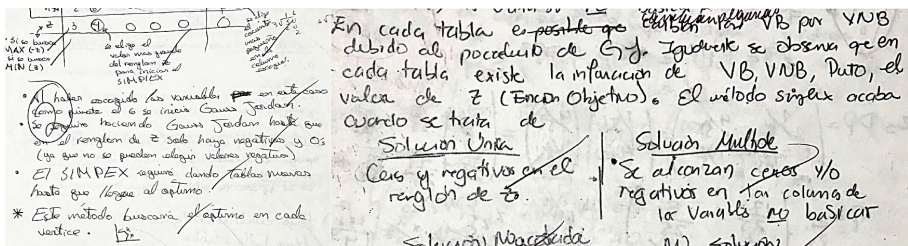 -z 3 4 0 0 0 0
* Si se busca
MAX (-0)
Si se busca
MIN (3)
se elige el
valor mas grande
del renglon z
para iniciar el
SIMPLEX
se elige
cociente
mas
pequeño
en la
columna
escogida.
• Al haber escogido las variables en este caso
como pivote el 6 se inicia Gauss Jordan.
• Se seguira haciendo Gauss Jordan hasta que
en el renglon de Z solo haya negativos y 0s
(ya que no se pueden elegir valores negativos)
• El SIMPEX seguira dando tablas nuevas
hasta que llegue al optimo.
* Este metodo buscara el optimo en cada
vertice.
En cada tabla es posible que VB por VNB
debido al pocedmito de G-J. Igualmente se observa qe en
cada tabla existe la infmacion de VB, VNB, Dato, el
valor de Z (Fncion Objetivo). El método simplex acaba
cuando se trata de
Solución Única
Ceros y negativos en el
renglón de Z.
Solución Multiple
• Se alcanzan ceros y/o
negativos en la columna de
las Variables no basicas
Solución No acotada
NO Solución